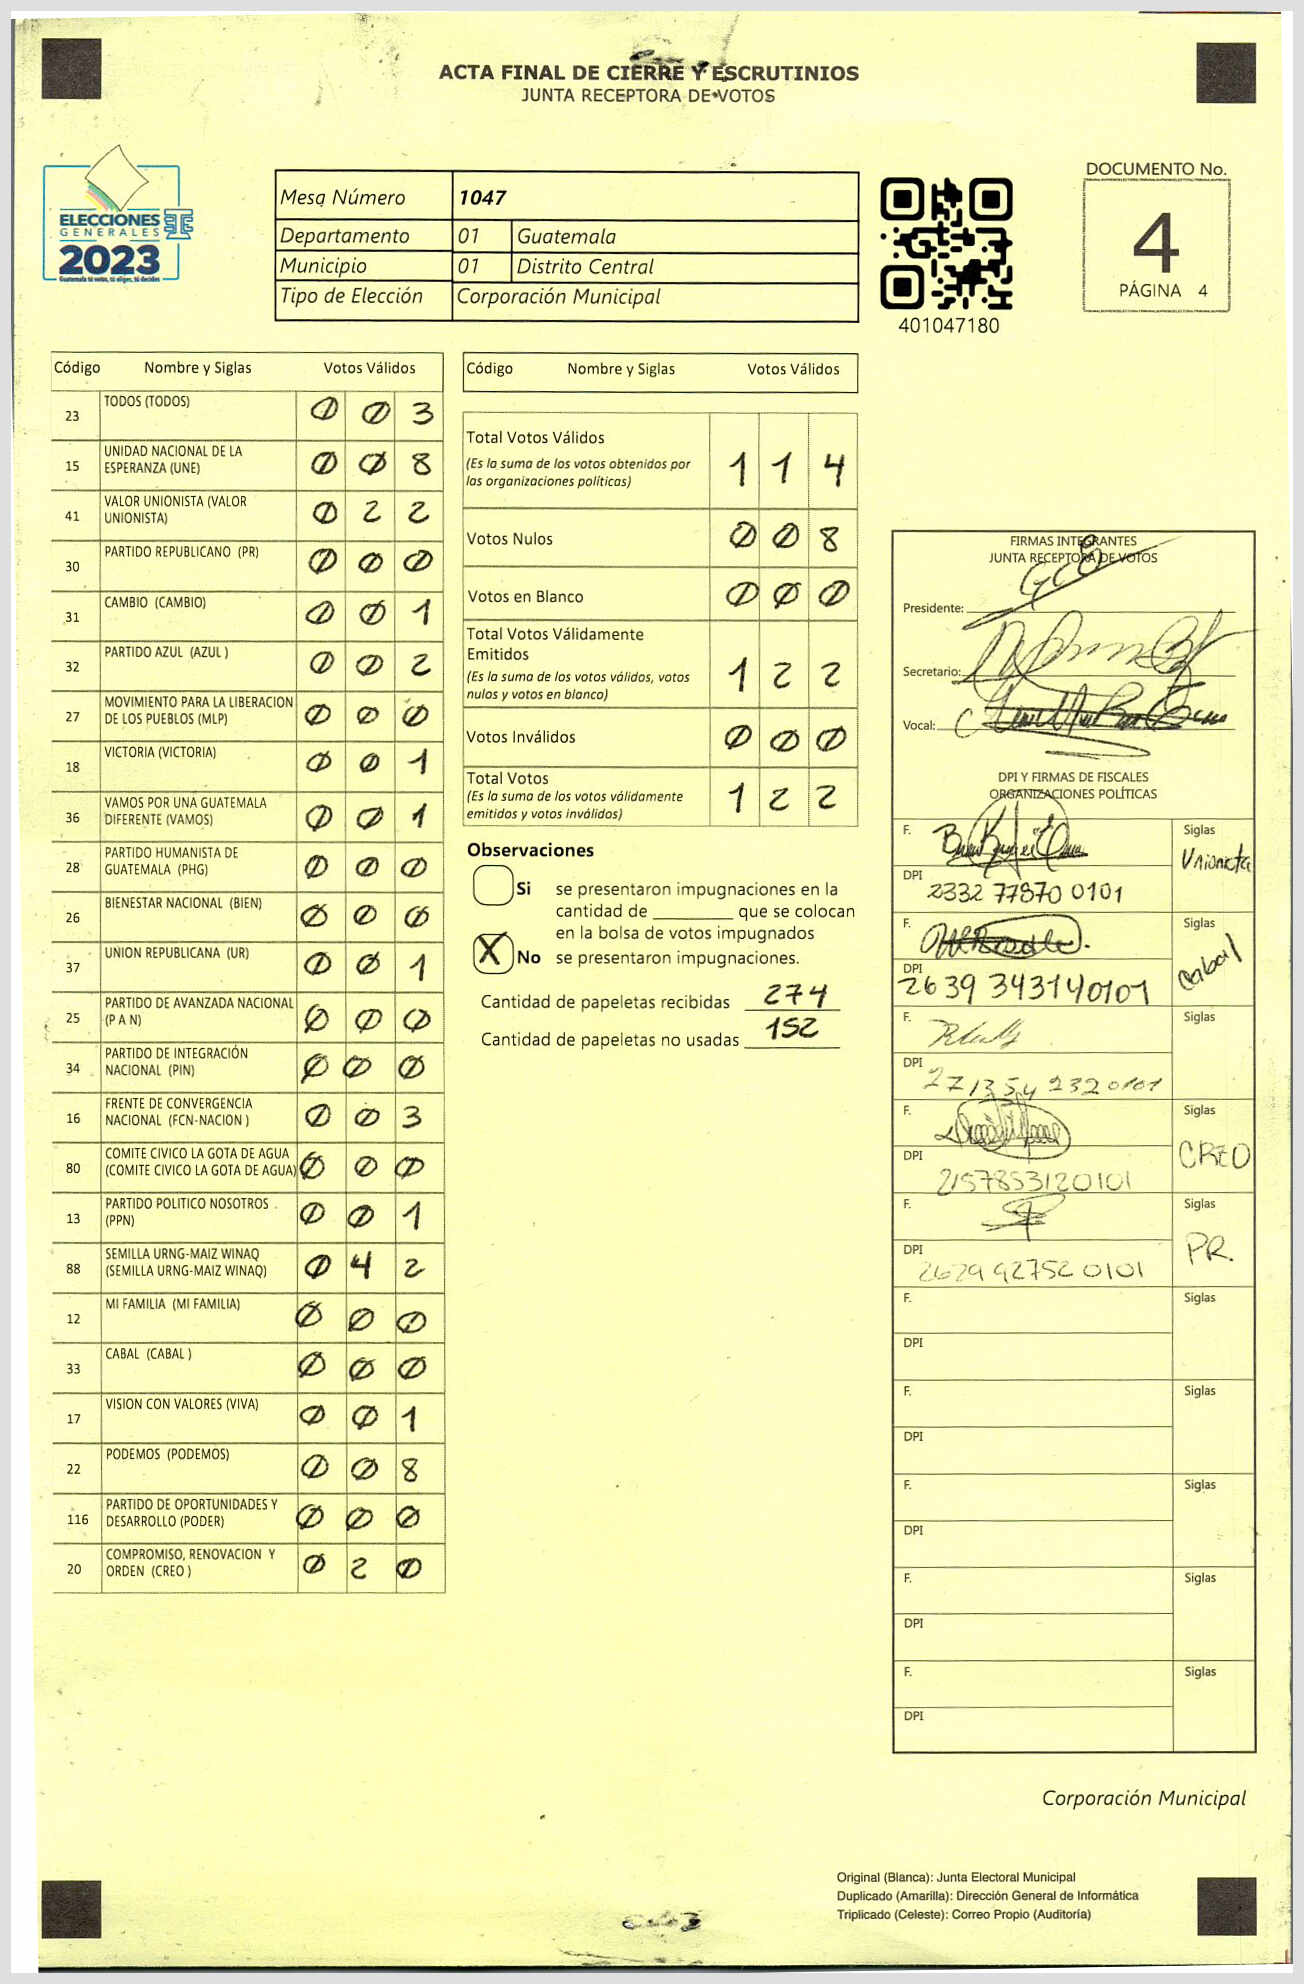 ACTA FINAL DE CIERRE Y ESCRUTINIOS
JUNTA RECEPTORA DE VOTOS
ELECCIONES
GENERALES
2023
Guatemala tú votas, tú eliges, tú decides
Mesa Número 1047
Departamento 01 Guatemala
Municipio 01 Distrito Central
Tipo de Elección Corporación Municipal
401047180
DOCUMENTO No.
4
PÁGINA 4
Código Nombre y Siglas Votos Válidos
23 TODOS (TODOS) 0 0 3
15 UNIDAD NACIONAL DE LA
ESPERANZA (UNE) 0 0 8
41 VALOR UNIONISTA (VALOR
UNIONISTA) 0 2 2
30 PARTIDO REPUBLICANO (PR) 0 0 0
31 CAMBIO (CAMBIO) 0 0 1
32 PARTIDO AZUL (AZUL ) 0 0 2
27 MOVIMIENTO PARA LA LIBERACION
DE LOS PUEBLOS (MLP) 0 0 0
18 VICTORIA (VICTORIA) 0 0 1
36 VAMOS POR UNA GUATEMALA
DIFERENTE (VAMOS) 0 0 1
28 PARTIDO HUMANISTA DE
GUATEMALA (PHG) 0 0 0
26 BIENESTAR NACIONAL (BIEN) 0 0 0
37 UNION REPUBLICANA (UR) 0 0 1
25 PARTIDO DE AVANZADA NACIONAL
(P A N) 0 0 0
34 PARTIDO DE INTEGRACIÓN
NACIONAL (PIN) 0 0 0
16 FRENTE DE CONVERGENCIA
NACIONAL (FCN-NACION ) 0 0 3
80 COMITE CIVICO LA GOTA DE AGUA
(COMITE CIVICO LA GOTA DE AGUA) 0 0 0
13 PARTIDO POLITICO NOSOTROS
(PPN) 0 0 1
88 SEMILLA URNG-MAIZ WINAQ
(SEMILLA URNG-MAIZ WINAQ) 0 4 2
12 MI FAMILIA (MI FAMILIA) 0 0 0
33 CABAL (CABAL ) 0 0 0
17 VISION CON VALORES (VIVA) 0 0 1
22 PODEMOS (PODEMOS) 0 0 8
116 PARTIDO DE OPORTUNIDADES Y
DESARROLLO (PODER) 0 0 0
20 COMPROMISO, RENOVACION Y
ORDEN (CREO ) 0 2 0
Código Nombre y Siglas Votos Válidos
Total Votos Válidos
(Es la suma de los votos obtenidos por
las organizaciones políticas) 1 1 4
Votos Nulos 0 0 8
Votos en Blanco 0 0 0
Total Votos Válidamente
Emitidos
(Es la suma de los votos válidos, votos
nulos y votos en blanco) 1 2 2
Votos Inválidos 0 0 0
Total Votos
(Es la suma de los votos válidamente
emitidos y votos inválidos) 1 2 2
Observaciones
Si se presentaron impugnaciones en la
cantidad de ________ que se colocan
en la bolsa de votos impugnados
X No se presentaron impugnaciones.
Cantidad de papeletas recibidas 274
Cantidad de papeletas no usadas 152
FIRMAS INTEGRANTES
JUNTA RECEPTORA DE VOTOS
Presidente:
Secretario:
Vocal:
DPI Y FIRMAS DE FISCALES
ORGANIZACIONES POLÍTICAS
F. Siglas
Unionista
DPI 2332 77870 0101
F. Siglas
Cabal
DPI 2639 34314 0101
F. Siglas
DPI 271354 232 0101
F. Siglas
CREO
DPI 2157853120101
F. Siglas
PR.
DPI 2629 92752 0101
F. Siglas
DPI
F. Siglas
DPI
F. Siglas
DPI
F. Siglas
DPI
F. Siglas
DPI
Corporación Municipal
Original (Blanca): Junta Electoral Municipal
Duplicado (Amarilla): Dirección General de Informática
Triplicado (Celeste): Correo Propio (Auditoría)